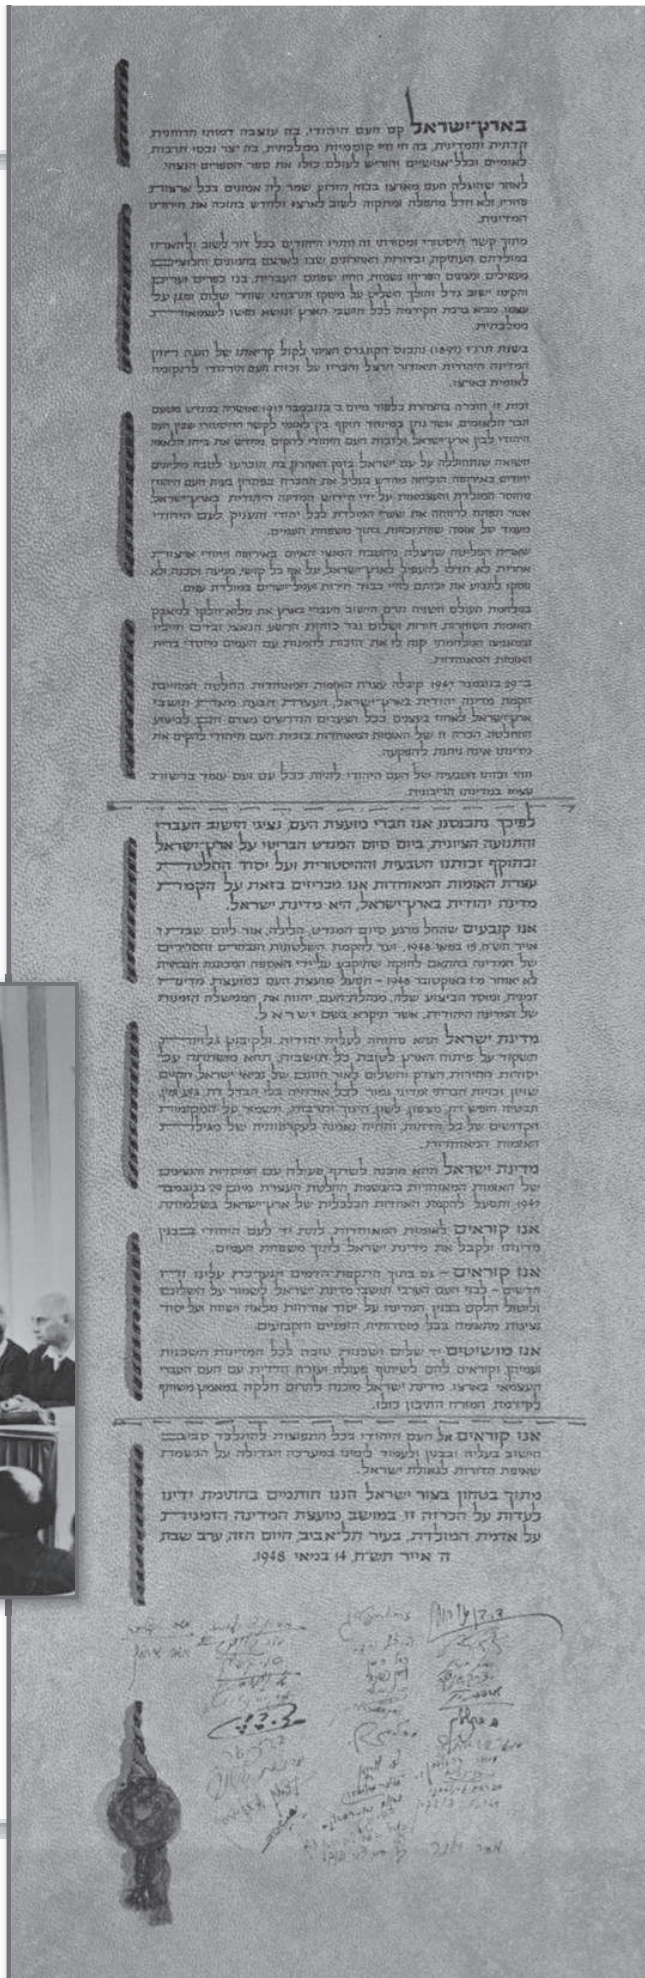 בארץ־ישראל קם העם היהודי, בה עוצבה דמותו הרוחנית,
הדתית והמדינית, בה חי חיי קוממיות ממלכתית, בה יצר נכסי תרבות
לאומיים וכלל־אנושיים והוריש לעולם כולו את ספר הספרים הנצחי.
לאחר שהוגלה העם מארצו בכוח הזרוע שמר לה אמונים בכל ארצות
פזוריו, ולא חדל מתפלה ומתקוה לשוב לארצו ולחדש בתוכה את חירותו
המדינית.
מתוך קשר היסטורי ומסורתי זה חתרו היהודים בכל דור לשוב ולהאחז
במולדתם העתיקה, ובדורות האחרונים שבו לארצם בהמונים, וחלוצים,
מעפילים ומגינים הפריחו נשמות, החיו שפתם העברית, בנו כפרים וערים,
והקימו ישוב גדל והולך השליט על משקו ותרבותו, שוחר שלום ומגן על
עצמו, מביא ברכת הקידמה לכל תושבי הארץ ונושא נפשו לעצמאות
ממלכתית.
בשנת תרנ"ז (1897) נתכנס הקונגרס הציוני לקול קריאתו של הוגה חזון
המדינה היהודית תיאודור הרצל והכריז על זכות העם היהודי לתקומה
לאומית בארצו.
זכות זו הוכרה בהצהרת בלפור מיום ב' בנובמבר 1917 ואושרה במנדט מטעם
חבר הלאומים, אשר נתן במיוחד תוקף בין־לאומי לקשר ההיסטורי שבין העם
היהודי לבין ארץ־ישראל ולזכות העם היהודי להקים מחדש את ביתו הלאומי.
השואה שנתחוללה על עם ישראל בזמן האחרון, בה הוכרעו לטבח מיליונים
יהודים באירופה, הוכיחה מחדש בעליל את ההכרח בפתרון בעית העם היהודי
מחוסר המולדת והעצמאות על־ידי חידוש המדינה היהודית בארץ־ישראל,
אשר תפתח לרווחה את שערי המולדת לכל יהודי ותעניק לעם היהודי
מעמד של אומה שוות־זכויות בתוך משפחת העמים.
שארית הפליטה שניצלה מהטבח הנאצי האיום באירופה ויהודי ארצות
אחרות לא חדלו להעפיל לארץ־ישראל, על אף כל קושי, מניעה וסכנה, ולא
פסקו לתבוע את זכותם לחיי כבוד, חירות ועמל־ישרים במולדת עמם.
במלחמת העולם השניה תרם הישוב העברי בארץ את מלוא־חלקו למאבק
האומות השוחרות חירות ושלום נגד כוחות הרשע הנאצי, ובדם חייליו
ובמאמצו המלחמתי קנה לו את הזכות להמנות עם העמים מיסדי ברית
האומות המאוחדות.
ב־29 בנובמבר 1947 קיבלה עצרת האומות המאוחדות החלטה המחייבת
הקמת מדינה יהודית בארץ־ישראל; העצרת תבעה מאת תושבי
ארץ־ישראל לאחוז בעצמם בכל הצעדים הנדרשים מצדם הם לביצוע
ההחלטה. הכרה זו של האומות המאוחדות בזכות העם היהודי להקים את
מדינתו אינה ניתנת להפקעה.
זוהי זכותו הטבעית של העם היהודי להיות ככל עם ועם עומד ברשות
עצמו במדינתו הריבונית.
לפיכך נתכנסנו, אנו חברי מועצת העם, נציגי הישוב העברי
והתנועה הציונית, ביום סיום המנדט הבריטי על ארץ־ישראל
ובתוקף זכותנו הטבעית וההיסטורית ועל יסוד החלטת
עצרת האומות המאוחדות אנו מכריזים בזאת על הקמת
מדינה יהודית בארץ־ישראל, היא מדינת ישראל.
אנו קובעים שהחל מרגע סיום המנדט, הלילה, אור ליום שבת ו'
אייר תש"ח, 15 במאי 1948, ועד להקמת השלטונות הנבחרים והסדירים
של המדינה בהתאם לחוקה שתיקבע על־ידי האספה המכוננת הנבחרת
לא יאוחר מ־1 באוקטובר 1948 – תפעל מועצת העם כמועצת מדינה
זמנית, ומוסד הביצוע שלה, מנהלת־העם, יהווה את הממשלה הזמנית
של המדינה היהודית, אשר תיקרא בשם ישראל.
מדינת ישראל תהא פתוחה לעליה יהודית ולקיבוץ גלויות;
תשקוד על פיתוח הארץ לטובת כל תושביה; תהא מושתתה על
יסודות החירות, הצדק והשלום לאור חזונם של נביאי ישראל; תקיים
שויון זכויות חברתי ומדיני גמור לכל אזרחיה בלי הבדל דת, גזע ומין;
תבטיח חופש דת, מצפון, לשון, חינוך ותרבות; תשמור על המקומות
הקדושים של כל הדתות; ותהיה נאמנה לעקרונותיה של מגילת
האומות המאוחדות.
מדינת ישראל תהא מוכנה לשתף פעולה עם המוסדות והנציגים
של האומות המאוחדות בהגשמת החלטת העצרת מיום 29 בנובמבר
1947 ותפעל להקמת האחדות הכלכלית של ארץ־ישראל בשלמותה.
אנו קוראים לאומות המאוחדות לתת יד לעם היהודי בבנין
מדינתו ולקבל את מדינת ישראל לתוך משפחת העמים.
אנו קוראים – גם בתוך התקפת־הדמים הנערכת עלינו זה
חדשים – לבני העם הערבי תושבי מדינת ישראל לשמור על השלום
וליטול חלקם בבנין המדינה על יסוד אזרחות מלאה ושווה ועל יסוד
נציגות מתאימה בכל מוסדותיה, הזמניים והקבועים.
אנו מושיטים יד שלום ושכנות טובה לכל המדינות השכנות
ועמיהן, וקוראים להם לשיתוף פעולה ועזרה הדדית עם העם העברי
העצמאי בארצו. מדינת ישראל מוכנה לתרום חלקה במאמץ משותף
לקידמת המזרח התיכון כולו.
אנו קוראים אל העם היהודי בכל התפוצות להתלכד סביב
הישוב בעליה ובבנין ולעמוד לימינו במערכה הגדולה על הגשמת
שאיפת הדורות לגאולת ישראל.
מתוך בטחון בצור ישראל הננו חותמים בחתימת ידינו
לעדות על הכרזה זו, במושב מועצת המדינה הזמנית,
על אדמת המולדת, בעיר תל־אביב, היום הזה, ערב שבת,
ה' אייר תש"ח, 14 במאי 1948.